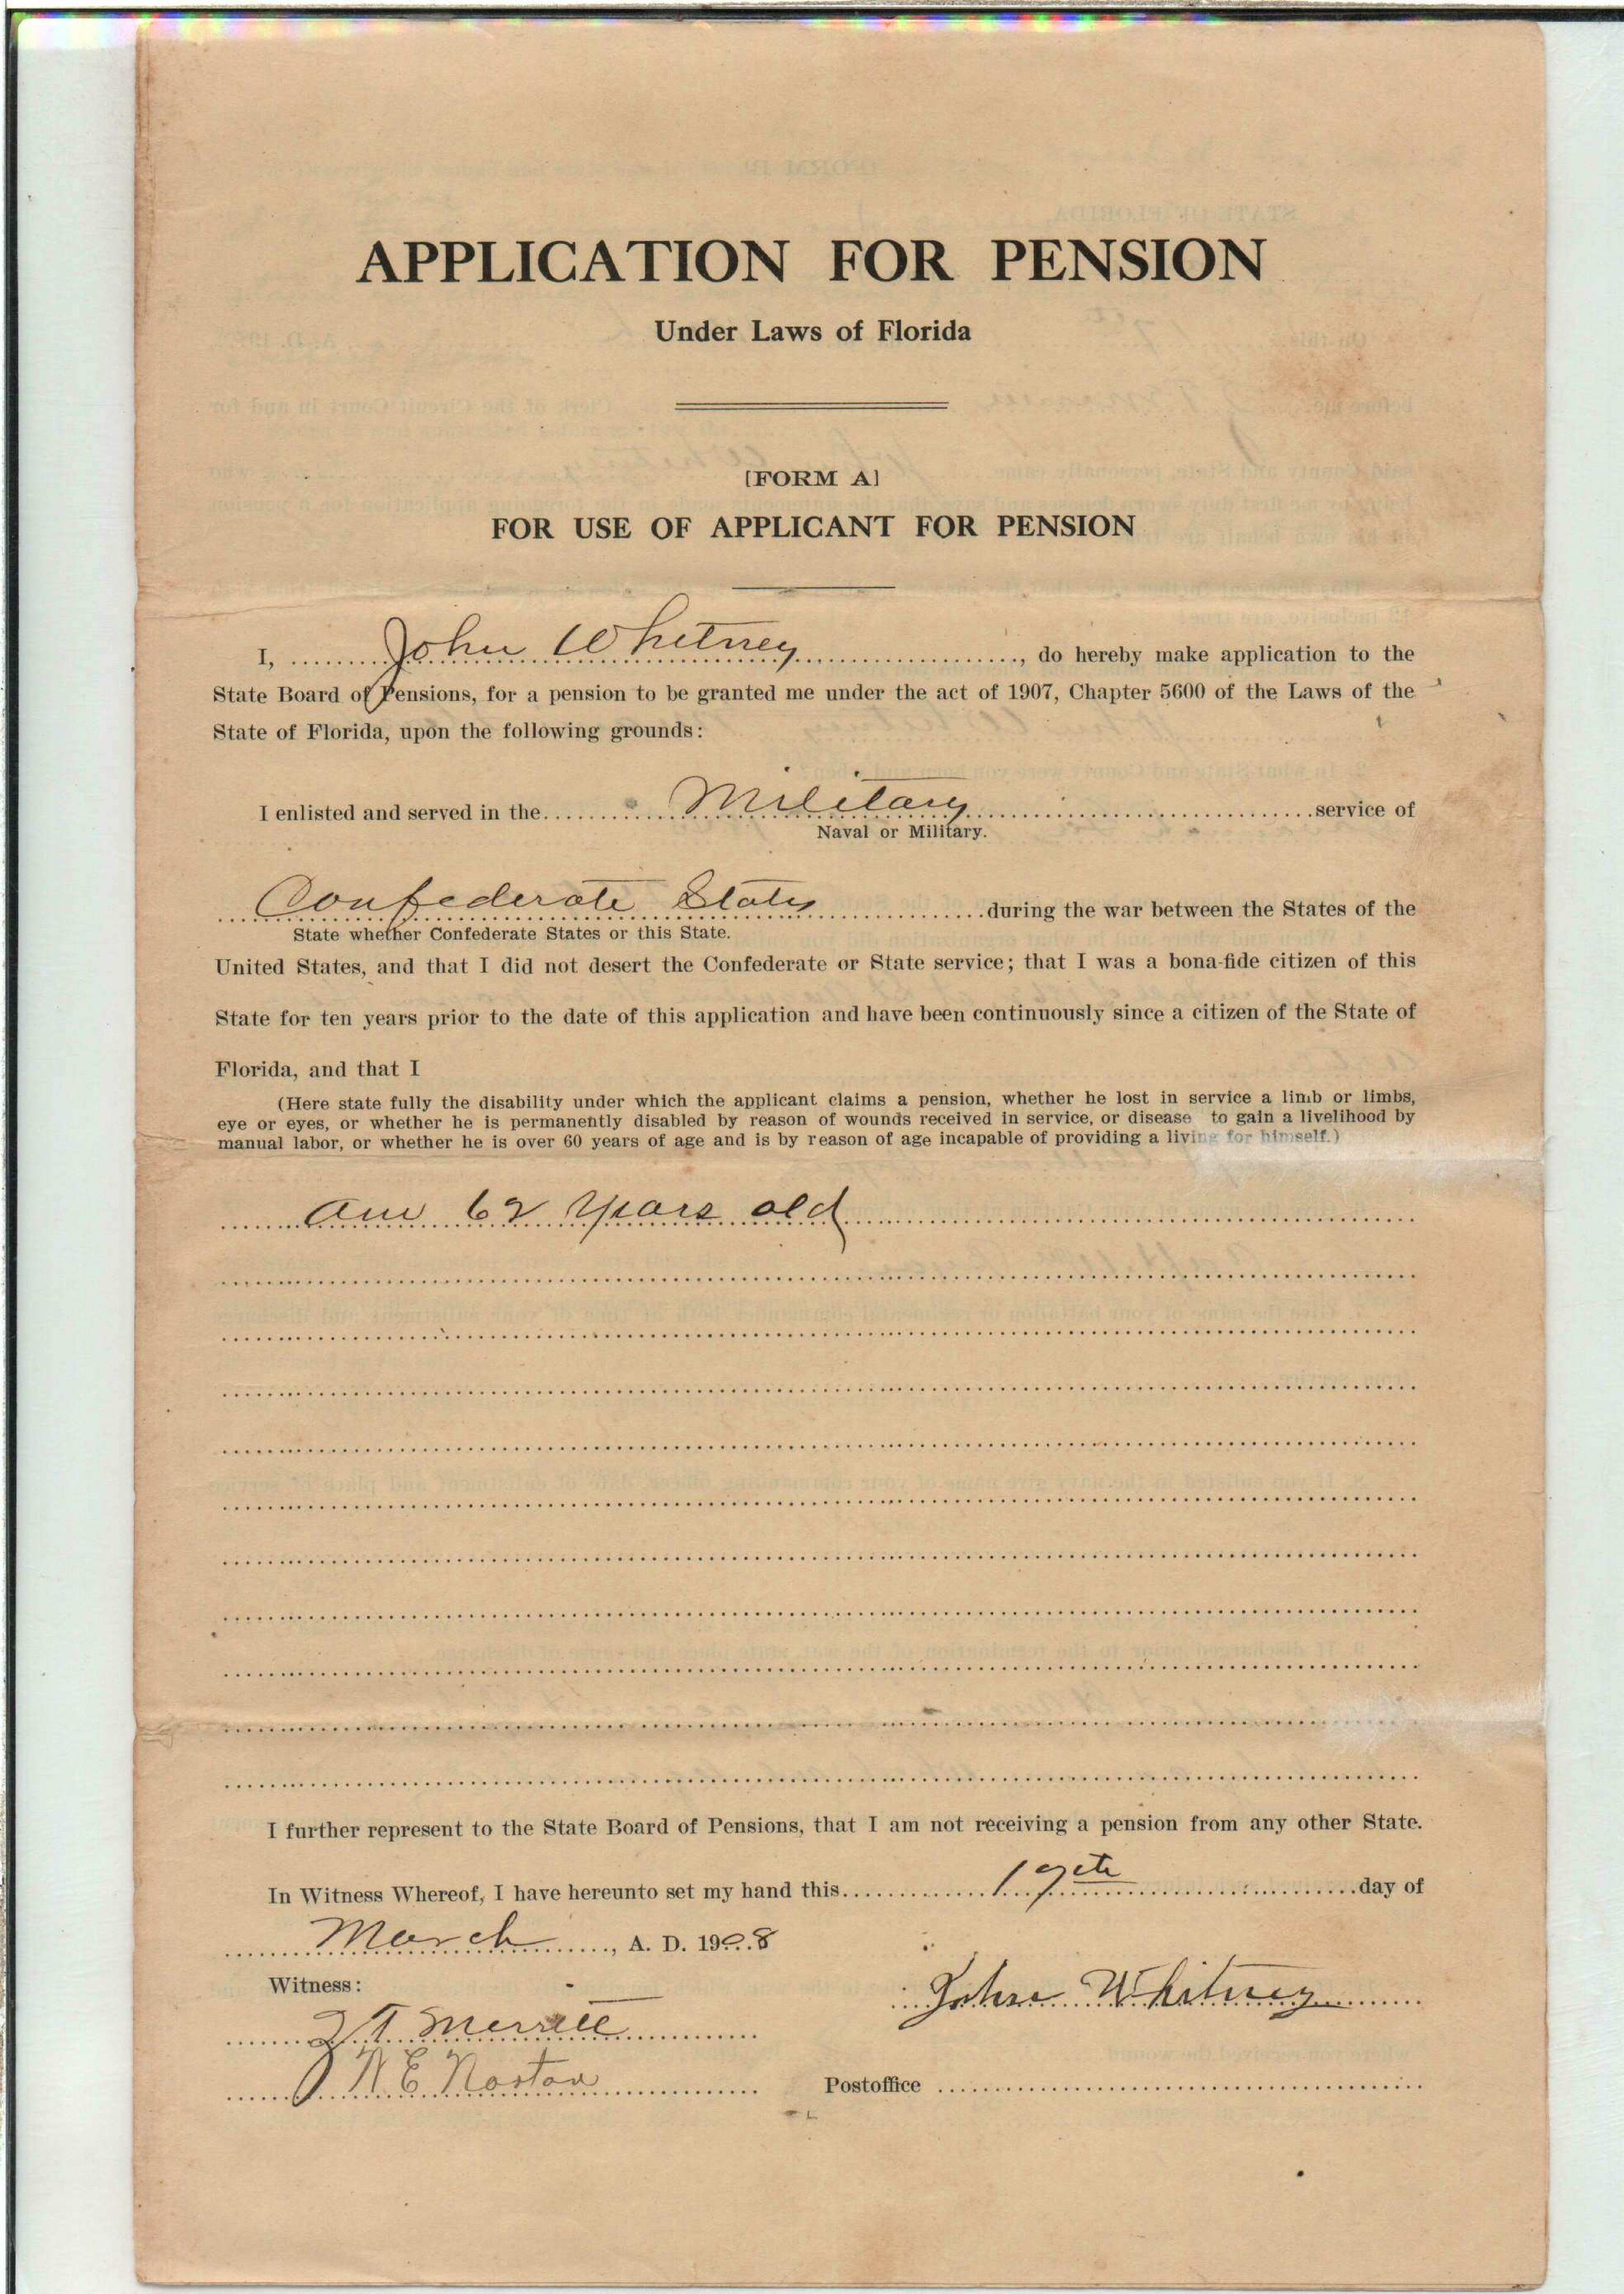 APPLICATION FOR PENSION
Under Laws of Florida
[FORM A]
FOR USE OF APPLICANT FOR PENSION
I, John Whitney, do hereby make application to the
State Board of Pensions, for a pension to be granted me under the act of 1907, Chapter 5600 of the Laws of the
State of Florida, upon the following grounds:
I enlisted and served in the Military service of
Naval or Military.
Confederate States during the war between the States of the
State whether Confederate States or this State.
United States, and that I did not desert the Confederate or State service; that I was a bona-fide citizen of this
State for ten years prior to the date of this application and have been continuously since a citizen of the State of
Florida, and that I
(Here state fully the disability under which the applicant claims a pension, whether he lost in service a limb or limbs,
eye or eyes, or whether he is permanently disabled by reason of wounds received in service, or disease to gain a livelihood by
manual labor, or whether he is over 60 years of age and is by reason of age incapable of providing a living for himself.)
Am 62 Years old
I further represent to the State Board of Pensions, that I am not receiving a pension from any other State.
In Witness Whereof, I have hereunto set my hand this 19th day of
March, A. D. 1908
Witness:
John Whitney
Merrill
Postoffice